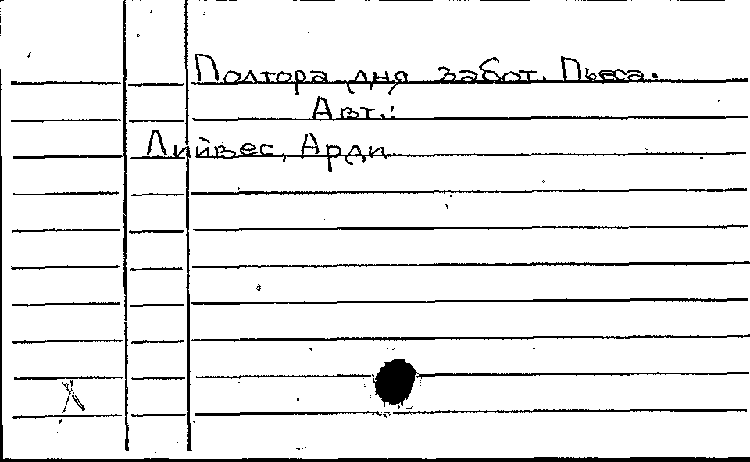 Полтора дня забот. Пьеса.
Авт.:
Лийвес, Арди